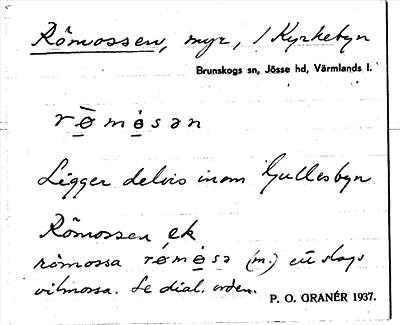 Römossen, myr, / Kyrkebyn
Brunskogs sn, Jösse hd, Värmlands l.
rø̄mòsən
Ligger delvis inom Gullesbyn
Römossen ek
römossa rømòsə (m.) ett slags
vitmossa. Se dial. orden.
P. O. GRANÉR 1937.